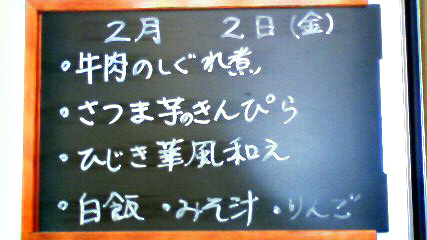 2月 2日(金)
・牛肉のしぐれ煮
・さつま芋のきんぴら
・ひじき華風和え
・白飯 ・みそ汁 ・りんご